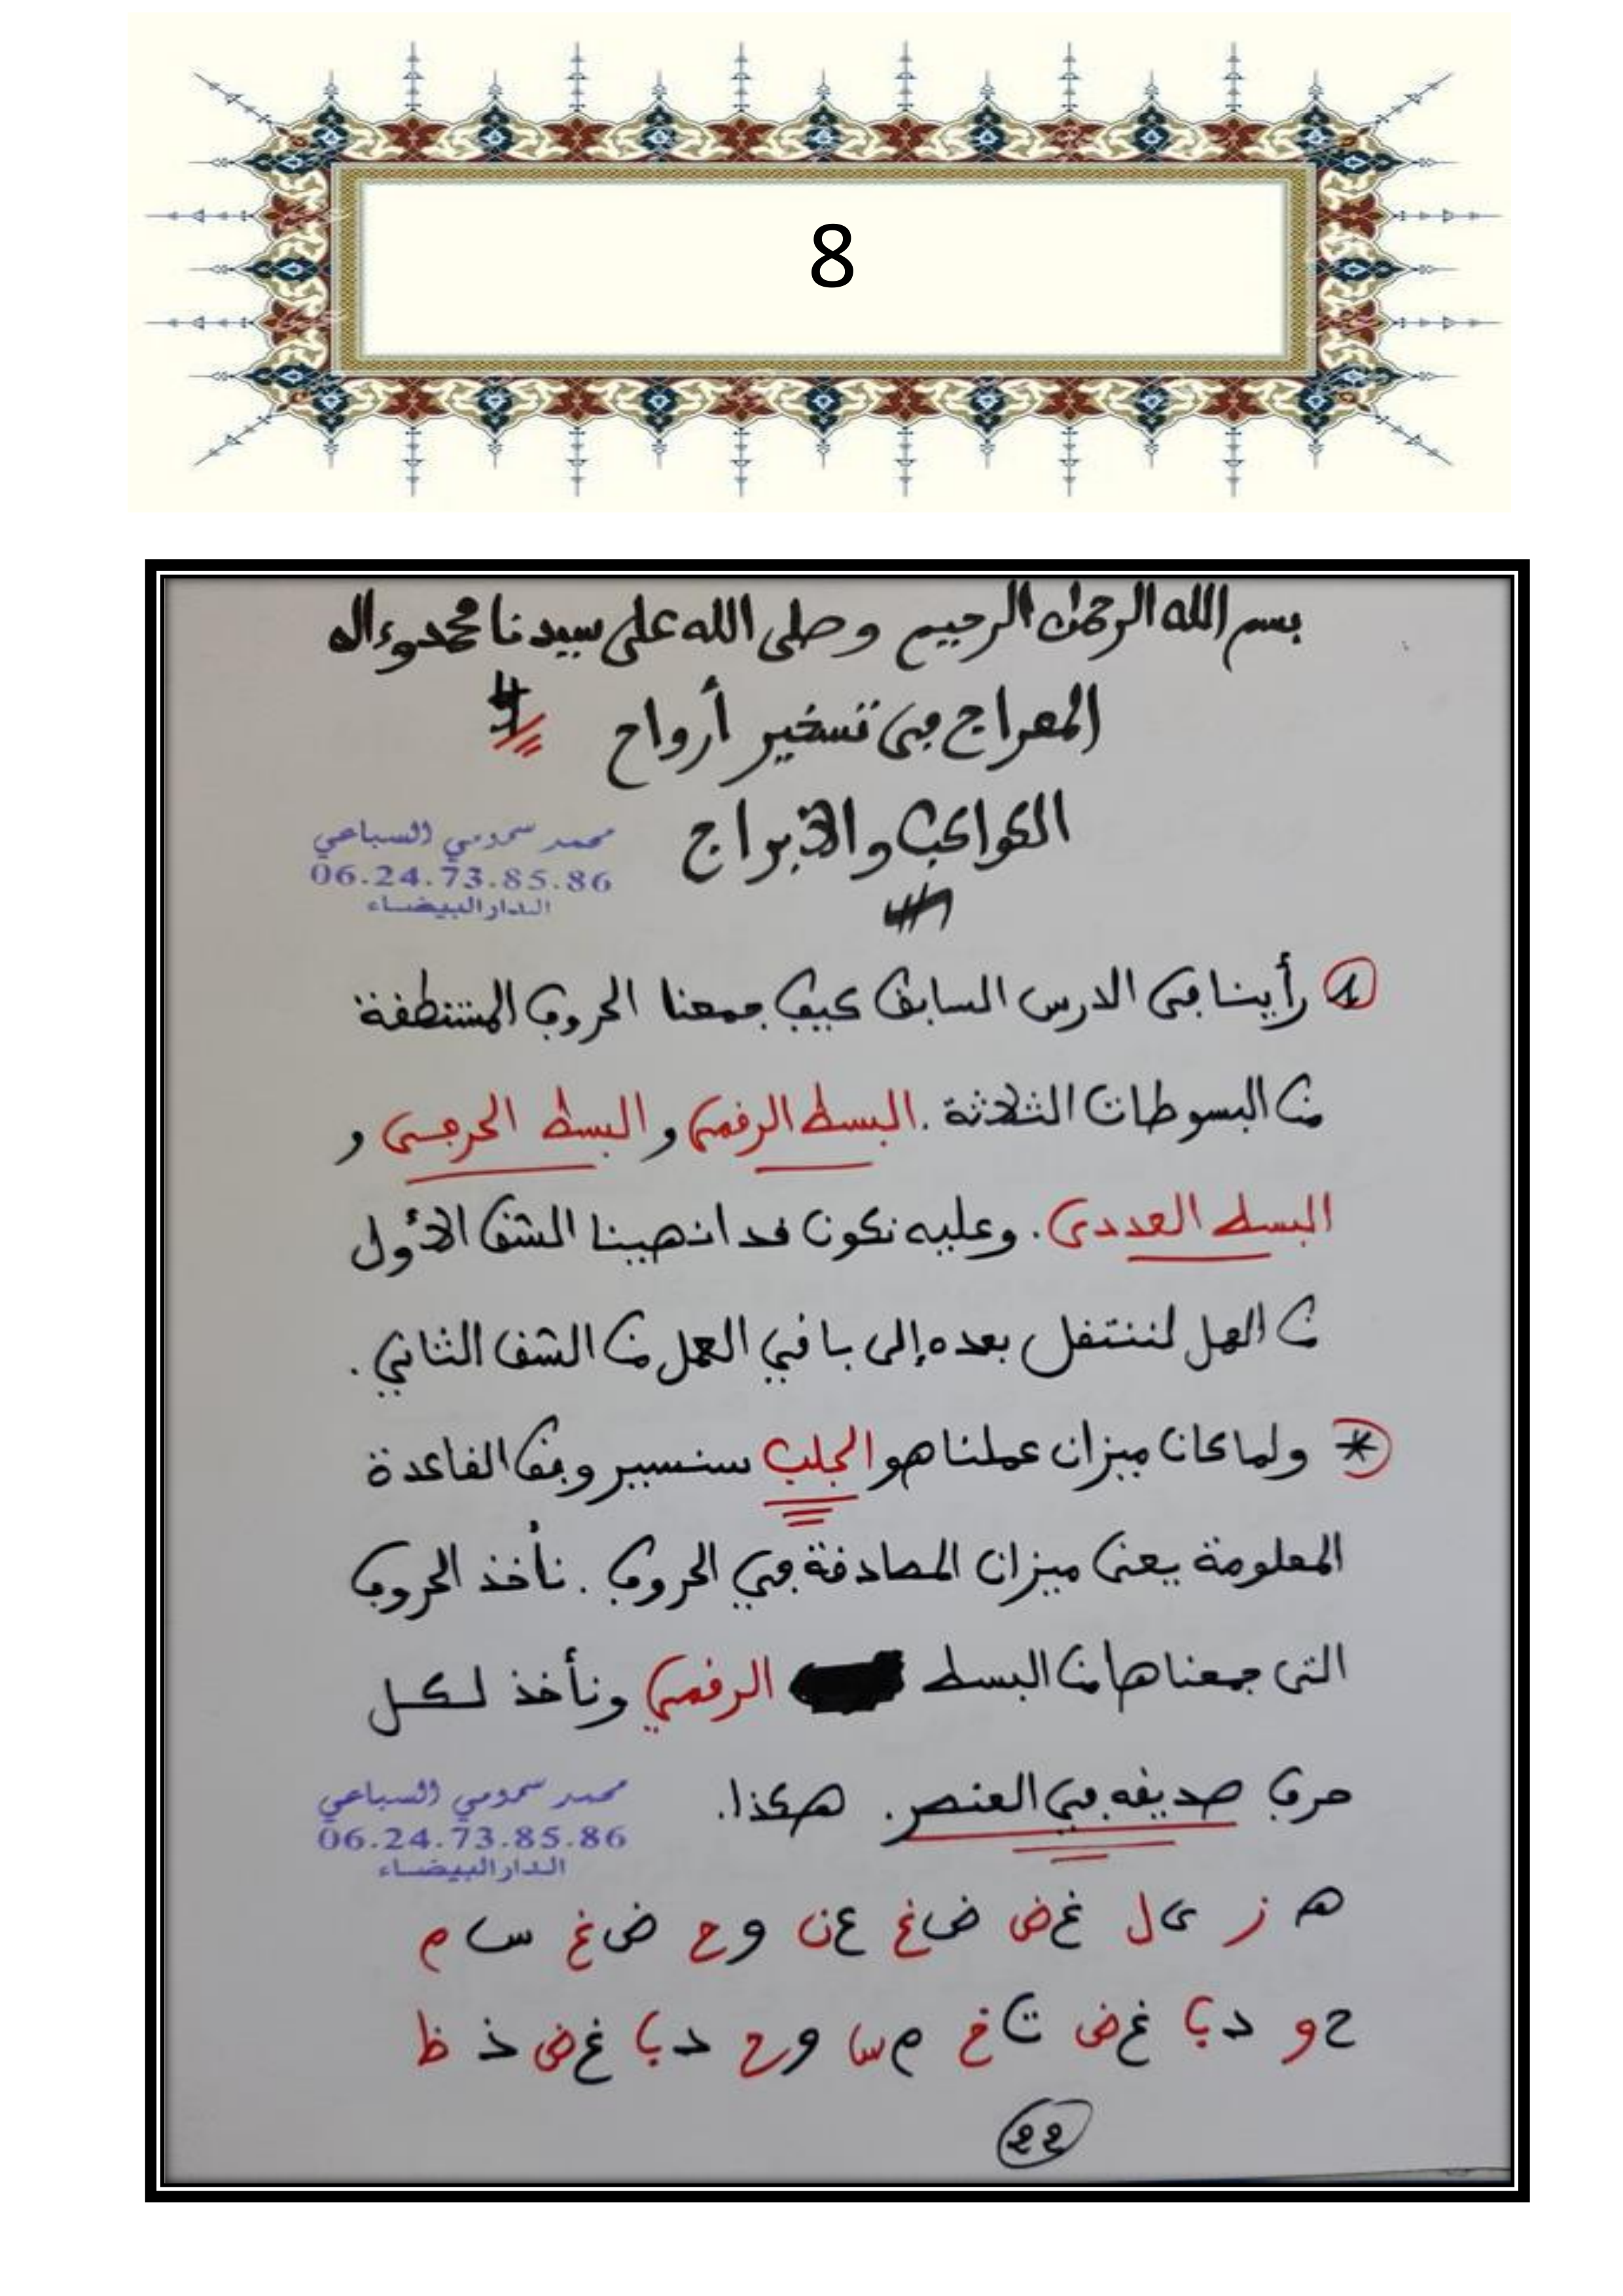 8
بسم الله الرحمن الرحيم وصلى الله على سيدنا محمد وءاله
المعراج في تسخير أرواح
الكواكب والأبراج
محمد سمومي السباعي
06.24.73.85.86
الدار البيضاء
1 رأينا في الدرس السابق كيف جمعنا الحروف المستنطقة
من البسوطات الثلاثة . البسط الرقمي والبسط الحرفي و
البسط العددي . وعليه نكون قد انهينا الشق الأول
من العمل لننتقل بعده إلى باقي العمل من الشق الثاني .
* ولما كان ميزان عملنا هو الجلب سنسير وفق القاعدة
المعلومة يعني ميزان المصادقة في الحروف . نأخذ الحروف
التي جمعناها من البسط الرقمي ونأخذ لكل
حرف صديقه في العنصر . هكذا .
محمد سمومي السباعي
06.24.73.85.86
الدار البيضاء
ه ز ي ل غ ض ض غ ع ن و ح ض غ س م
ح و د ب غ ض ت خ م س و ح د ب غ ض ذ ظ
22